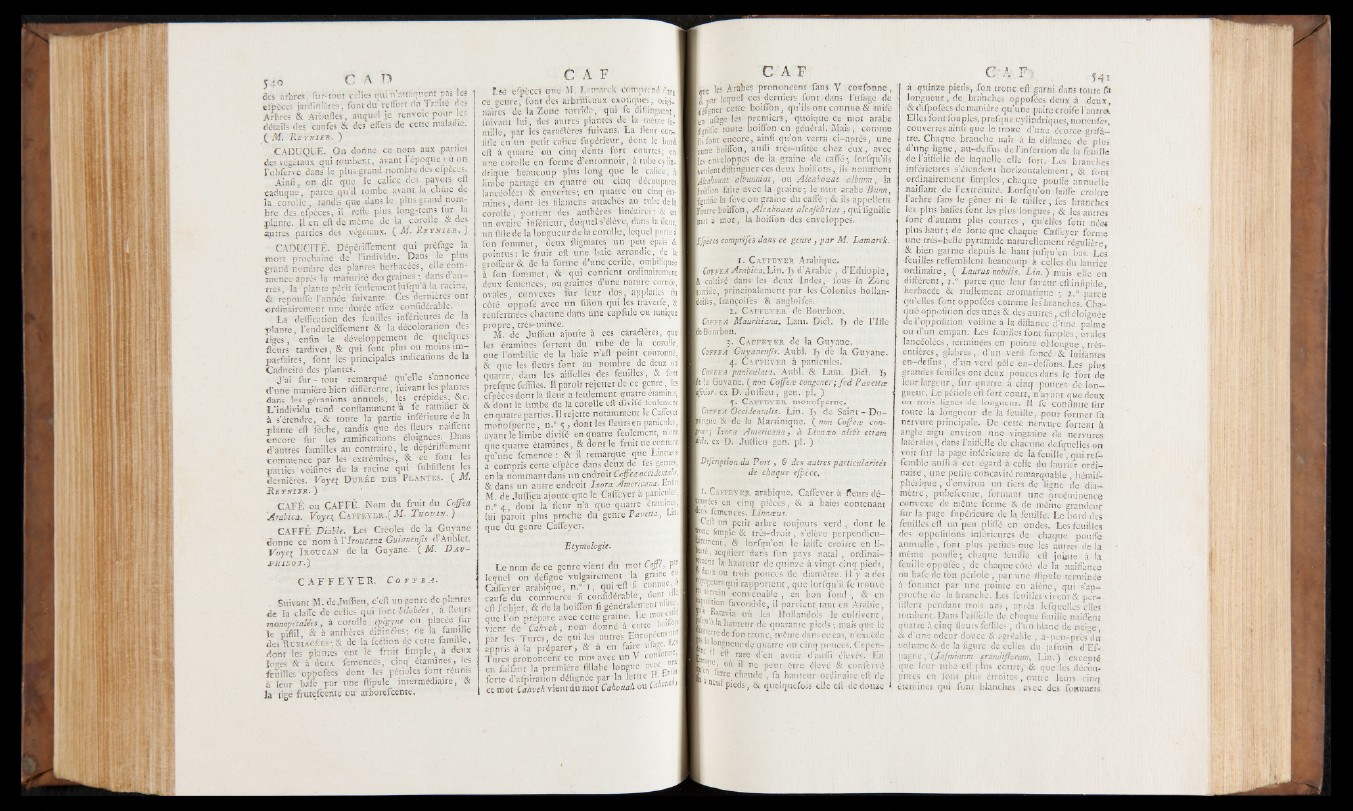 540 C A D
des arbres, ſur-tout celles qui n'attaquent pas les
eſpèces jardinières, ſont du reſſort du Traité des
Arbres & Arbuſtes, auquel je renvoie pour les
détails des cauſes & des effets de cette maladie.
( M. REYNIER. )
CADUQUE. On donne ce nom aux parties
des végétaux qui tombent, avant l'époque où on
l'obſerve dans le plus grand nombre des eſpèces.
Ainſi, on dit que le calice des pavots eſt
caduque, parce qu'il tombe avant la chûte de
la corolle, tandis que dans le plus grand nom-
bre des eſpèces, il reſte plus long-tems ſur la
plante. Il en eſt de même de la corolle & des
autres parties des végétaux. ( M. REYNIER. )
CADUCITÉ. Dépériſſement qui préſage la
mort prochaine de l'individu. Dans le plus
grand nombre des plantes herbacées, elle com-
mence après la maturité des graines : dans d'au-
tres, la plante périt ſeulement juſqu'à la racine,
& repouſſe l'année ſuivante. Ces dernières ont
ordinairement une durée aſſez conſidérable.
La deſſication des feuilles inférieures de la
plante, l'endurciſſement & la décoloration des
tiges, enfin le développement de quelques
fleurs tardives, & qui ſont plus ou moins im-
parfaites, ſont les principales indications de la
Caducité des plantes.
J'ai ſur-tout remarqué qu'elle s'annonce
d'une manière bien différente, ſuivant les plantes
dans les géranions annuels, les crépides, &c.
L'individu tend conſtamment à ſe ramifier &
à s'étendre, & toute la partie inférieure de la
plante eſt ſèche, tandis que des fleurs naiſſent
encore ſur les ramifications éloignées. Dans
d'autres familles au contraire, le dépériſſement
commence par les extrémités, & ce ſont les
parties voiſines de la racine qui ſubſiſtent les
dernières. Voyez DURÉE DES PLANTES. ( M.
REYNIER. )
CAFÉ ou CAFFÉ. Nom du fruit du Coffea
Arabica. Voyez CAFFEYER. ( M. THOUIN. )
CAFFÉ Diable. Les Créoles de la Guyane
donne ce nom à l'Iroucana Guianenſis d'Aublet.
Voyez IROUCAN de la Guyane. ( M. DAU-
PHINOT. )
CAFFEYER. COFFEA.
Suivant M. de Juſſieu, c'eſt un genre de plantes
de la claſſe de celles qui ſont bilobées, à fleurs
monopétalées, à corolle épigyne ou placée ſur
le piſtil, & à anthères diſtinctes; de la famille
des RUBIACÉES; & de la ſection de cette famille,
dont les plantes ont le fruit ſimple, à deux
loges & à deux ſemences, cinq étamines, les
feuilles oppoſées dont les pétioles ſont réunis
à leur baſe par une ſtipule intermédiaire, &
la tige fruteſcente ou arboreſcente.
C A F
Les eſpèces que M. Lamarck comprend dans
ce genre, ſont des arbriſſeaux exotiques, origi-
naires de la Zone torride, qui ſe diſtinguent,
ſuivant lui, des autres plantes de la même fa-
mille, par les caractères ſuivans. La fleur con-
ſiſte en un petit calice ſupérieur, dont le bord
eſt à quatre ou cinq dents fort courtes; en
une corolle en forme d'entonnoir, à tube cylin-
drique beaucoup plus long que le calice, à
limbe partagé en quatre ou cinq découpures
lancéolées & ouvertes; en quatre ou cinq éta-
mines, dont les filamens attachés au tube de la
corolle, portent des anthères linéaires; & en
un ovaire inférieur, duquel s'élève, dans la fleur,
un ſtile de la longueur de la corolle, lequel porte à
ſon ſommet, deux ſtigmates un peu épais &
pointus : le fruit eſt une baie arrondie, de la
groſſeur & de la forme d'une ceriſe, ombiliquée
à ſon ſommet, & qui contient ordinairement
deux ſemences, ou graines d'une nature cornée,
ovales, convexes ſur leur dos, applaties du
côté oppoſé avec un ſillon qui les traverſe, &
renfermées chacune dans une capſule ou tunique
propre, très-mince.
M. de Juſſieu ajoute à ces caractères, que
les étamines ſortent du tube de la corolle,
que l'ombilic de la baie n'eſt point couronné,
& que les fleurs ſont au nombre de deux ou
quatre, dans les aiſſelles des feuilles, & ſont
preſque ſeſſiles. Il paroît rejetter de ce genre, les
eſpèces dont la fleur a ſeulement quatre étamines,
& dont le limbe de la corolle eſt diviſé ſeulement
en quatre parties. Il rejette notamment le Caffeyer
monoſperme, n.° 5, dont les fleurs en panicules,
ayant le limbe diviſé en quatre ſeulement, n'ont
que quatre étamines, & dont le fruit ne contient
qu'une ſemence : & il remarque que Linnæus
a compris cette eſpèce dans deux de ſes genres,
en la nommant dans un endroit Coffea occidentalis,
& dans un autre endroit Ixora Americana. Enfin
M. de Juſſieu ajoute que le Caffeyer à panicules,
n.° 4, dont la fleur n'a que quatre étamines,
lui paroît plus proche du genre Pavetta, Lin.
que du genre Caffeyer.
Etymologie.
Le nom de ce genre vient du mot Caffé, par
lequel on deſigne vulgairement la graine du
Caffeyer arabique, n.° 1, qui eſt ſi connue, à
cauſe du commerce ſi conſidérable, dont elle
eſt l'objet, & de la boiſſon ſi généralement uſitée,
que l'on prépare avec cette graine. Le mot caffé
vient de Cahveh, nom donné à cette boiſſon
par les Turcs, de qui les autres Européens ont
appris à la préparer, & à en faire uſage. Les
Turcs prononcent ce mot avec un V conſonne,
en faiſant la première ſillabe longue avec une
ſorte d'aſpiration déſignée par la lettre H. Enfin
ce mot Cahveh vient du mot Cahouah ou Cahoueh,
C A F
que les Arabes prononcent ſans V conſonne,
& par lequel ces derniers ſont dans l'uſage de
déſigner cette boiſſon, qu'ils ont connue & miſe
en uſage les premiers, quoique ce mot arabe
ſignifie toute boiſſon en général. Mais, comme
ils font encore, ainſi qu'on verra ci-après, une
autre boiſſon, auſſi très-uſitée chez eux, avec
les enveloppes de la graine de caffé; lorſqu'ils
veulent diſtinguer ces deux boiſſons, ils nomment
Alcahouat albunniat, ou Alcahouat albunn, la
boiſſon faite avec la graine; le mot arabe Bunn,
ſignifie la fève ou graine du caffé; & ils appellent
l'autre boiſſon, Alcahouat alcaſchriat, qui ſignifie
mot à mot, la boiſſon des enveloppes.
Eſpèces compriſes dans ce genre, par M. Lamarck.
1. CAFFEYER Arabique.
COFFEA Arabica. Lin. ♄ d'Arabie, d'Ethiopie,
& cultivé dans les deux Indes, ſous la Zone
torride, principalement par les Colonies hollan-
doiſes, françoiſes & angloiſes.
2. CAFFEYER de Bourbon.
COFFEA Mauritiana. Lam. Dict. ♄ de l'Iſle
de Bourbon.
3. CAFFEYER de la Guyane.
COFFEA Guyanenſis. Aubl. ♄ de la Guyane.
4. CAFFEYER à panicules.
COFFEA paniculata. Aubl. & Lam. Dict. ♄
de la Guyane. ( non Coffeæ congener; ſed Pavettæ
affinior. ex D. Juſſieu, gen. pl. )
5. CAFFEYER monoſperme.
COFFEA Occidentalis. Lin. ♄ de Saint-Do-
mingue & de la Martinique. ( non Coffeæ con-
gener; Ixora Americana, à Linnæo alibi etiam
dicta. ex D. Juſſieu gen. pl. )
Deſcription du Port, & des autres particularités
de chaque eſpèce.
1. CAFFEYER arabique. Caffeyer à fleurs dé-
coupées en cinq pièces, & à baies contenant
deux ſemences. Linnæus.
C'eſt un petit arbre toujours verd, dont le
tronc ſimple & très-droit, s'élève perpendicu-
lairement, & lorſqu'on le laiſſe croître en li-
berté, acquiert dans ſon pays natal, ordinai-
rement la hauteur de quinze à vingt-cinq pieds,
& deux ou trois pouces de diamètre. Il y a des
voyageurs qui rapportent, que lorſqu'il ſe trouve
en terrain convenable, en bon fond, & en
expoſition favorable, il parvient tant en Arabie,
qu'à Batavia où les Hollandois le cultivent,
juſqu'à la hauteur de quarante pieds; mais que le
diamètre de ſon tronc, même dans ce cas, n'excède
pas la longueur de quatre ou cinq pouces. Cepen-
dant il eſt rare d'en avoir d'auſſi élevés. En
Europe, où il ne peut être élevé & conſervé
qu'en ſerre chaude, ſa hauteur ordinaire eſt de
ſix à neuf pieds, & quelquefois elle eſt de douze
C A F 541
à quinze pieds, ſon tronc eſt garni dans toute ſa
longueur, de branches oppoſées deux à deux,
& diſpoſées de manière qu'une paire croiſe l'autre.
Elles ſont ſouples, preſque cylindriques, noueuſes,
couvertes ainſi que le tronc d'une écorce griſâ-
tre. Chaque branche naît à la diſtance de plus
d'une ligne, au-deſſus de l'inſertion de la feuille
de l'aiſſelle de laquelle elle ſort. Les branches
inférieures s'étendent horizontalement, & ſont
ordinairement ſimples, chaque pouſſe annuelle
naiſſant de l'extrémité. Lorſqu'on laiſſe croître
l'arbre ſans le gêner ni le tailler, ſes branches
les plus baſſes ſont les plus longues, & les autres
ſont d'autant plus courtes, qu'elles ſont nées
plus haut; de ſorte que chaque Caffeyer forme
une très-belle pyramide naturellement régulière,
& bien garnie depuis le haut juſqu'en bas. Les
feuilles reſſemblent beaucoup à celles du laurier
ordinaire, ( Laurus nobilis. Lin. ) mais elle en
diffèrent, 1.° parce que leur ſaveur eſt inſipide,
herbacée & nullement aromatique; 2.° parce
qu'elles ſont oppoſées comme les branches. Cha-
que oppoſition des unes & des autres, eſt éloignée
de l'oppoſition voiſine à la diſtance d'une palme
ou d'un empan. Les feuilles ſont ſimples, ovales
lancéolées, terminées en pointe oblongue, très-
entières, glabres, d'un verd foncé & luiſantes
en-deſſus, d'un verd pâle en-deſſous. Les plus
grandes feuilles ont deux pouces dans le fort de
leur largeur, ſur quatre à cinq pouces de lon-
gueur. Le pétiole eſt fort court, n'ayant que deux
ou trois lignes de longueur. Il ſe continue ſur
toute la longueur de la feuille, pour former ſa
nervure principale. De cette nervure ſortent à
angle aigu environ une vingtaine de nervures
latérales, dans l'aiſſelle de chacune deſquelles on
voit ſur la page inférieure de la feuille, qui reſ-
ſemble auſſi à cet égard à celle du laurier ordi-
naire, une petite concavité remarquable, hémiſ-
phérique, d'environ un tiers de ligne de dia-
mètre, pubeſcente, formant une proéminence
convexe de même forme & de même grandeur
ſur la page ſupérieure de la feuille. Le bord des
feuilles eſt un peu pliſſé en ondes. Les feuilles
des oppoſitions inférieures de chaque pouſſe
annuelle, ſont plus petites que les autres de la
même pouſſe; chaque feuille eſt jointe à la
feuille oppoſée, de chaque côté de la naiſſance
ou baſe de ſon pétiole, par une ſtipule terminée
à ſommet par une pointe en alène, qui s'ap-
proche de la branche. Les feuilles vivent & per-
ſiſtent pendant trois ans, après leſquelles elles
tombent. Dans l'aiſſelle de chaque feuille naiſſent
quatre à cinq fleurs ſeſſiles, d'un blanc de neige,
& d'une odeur douce & agréable, à-peu-près du
volume & de la figure de celles du jaſmin d'Eſ-
pagne, (Jaſminum grandiflorum, Lin.) excepté
que leur tube eſt plus court, & que les décou-
pures en ſont plus étroites, outre leurs cinq
étamines qui ſont blanches avec des ſommets